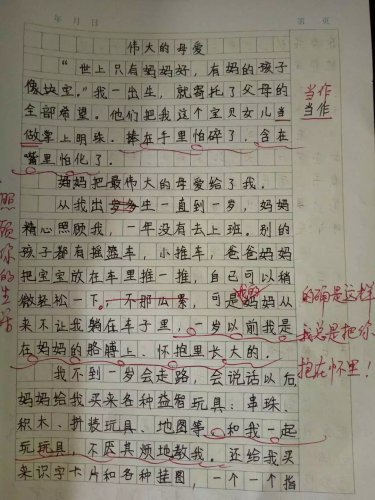 年 月 日 第 页
伟大的母爱
“世上只有妈妈好，有妈的孩子
像块宝。”我一出生，就寄托了父母的
全部希望。他们把我这个宝贝女儿当
做掌上明珠。捧在手里怕碎了，含在
嘴里怕化了。
妈妈把最伟大的母爱给了我。
从我出生一直到一岁，妈妈
精心照顾我，一年没有去上班。别的
孩子都有摇篮车，小推车，爸爸妈妈
把宝宝放在车里推一推，自己可以稍
微轻松一下。可是妈妈从
来不让我躺在车子里，一岁以前我是
在妈妈的胳膊上、怀抱里长大的。
我不到一岁会走路，会说话以后
妈妈给我买来各种益智玩具：串珠、
积木、拼装玩具、地图等，和我一起
玩玩具，不厌其烦地教我。还给我买
来识字卡片和各种挂图，一个一个指
当作
当作
照顾你的生活
的确是这样
我总是把你
抱在怀里！